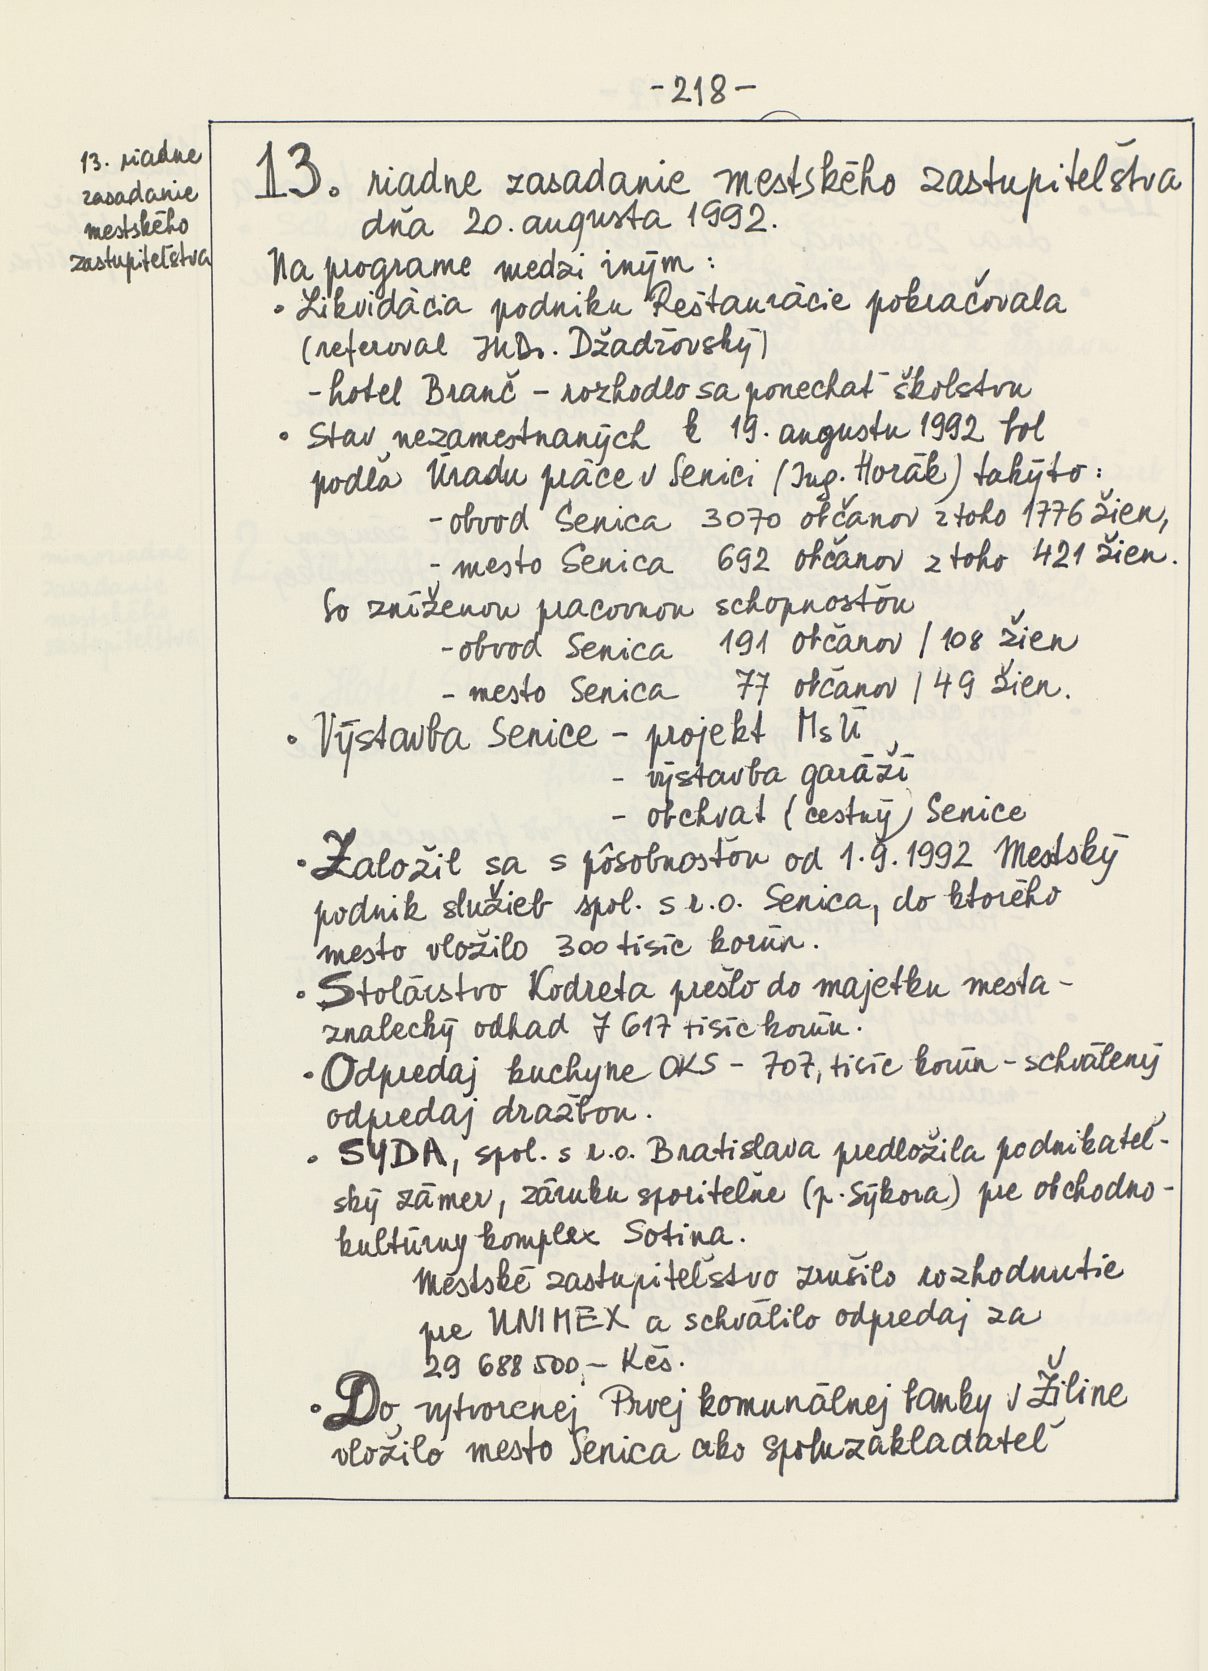 -218-
13. riadne
zasadanie
mestského
zastupiteľstva
13. riadne zasadanie mestského zastupiteľstva
dňa 20. augusta 1992.
Na programe medzi iným:
• Likvidácia podniku Reštaurácie pokračovala
(referoval JUDr. Džadžovský)
- hotel Branč - rozhodlo sa ponechať školstvu
• Stav nezamestnaných k 19. augustu 1992 bol
podľa Úradu práce v Senici (Ing. Horák) takýto:
- obvod Senica 3070 občanov z toho 1776 žien,
- mesto Senica 692 občanov z toho 421 žien.
So zníženou pracovnou schopnosťou
- obvod Senica 191 občanov / 108 žien
- mesto Senica 77 občanov / 49 žien.
• Výstavba Senice - projekt MsÚ
- výstavba garáží
- obchvat (cestný) Senice
• Založil sa s pôsobnosťou od 1.9.1992 Mestský
podnik služieb spol. s r.o. Senica, do ktorého
mesto vložilo 300 tisíc korún.
• Stolárstvo Kodreta prešlo do majetku mesta -
znalecký odhad 7 617 tisíc korún.
• Odpredaj kuchyne OKS - 707, tisíc korún - schválený
odpredaj dražbou.
• SYDA, spol. s r.o. Bratislava predložila podnikateľ-
ský zámer, záruku sporiteľne (p. Sýkora) pre obchodno-
kultúrny komplex Sotina.
Mestské zastupiteľstvo zrušilo rozhodnutie
pre UNIMEX a schválilo odpredaj za
29 688 500,- Kčs.
• Do vytvorenej Prvej komunálnej banky v Žiline
vložilo mesto Senica ako spoluzakladateľ